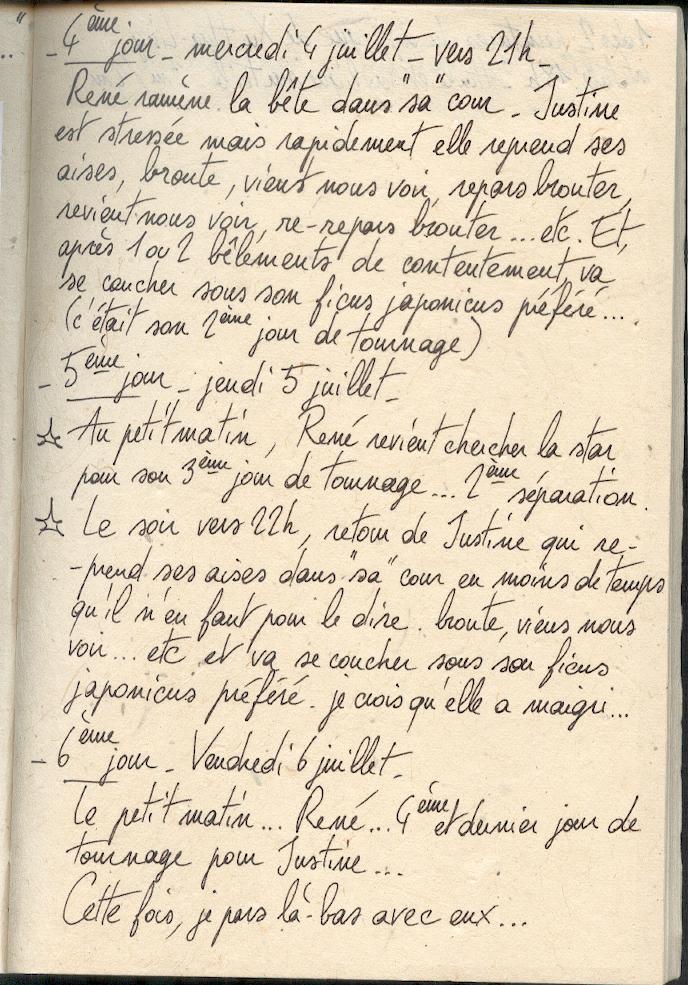 - 4ème jour - mercredi 4 juillet - vers 21h -
René ramène la bête dans "sa" cour - Justine
est stressée mais rapidement elle reprend ses
aises, broute, viens nous voir, repars brouter,
revient nous voir, re-repars brouter... etc. Et,
après 1 ou 2 bêlements, de contentement, va
se coucher sous son ficus japonicus préféré...
(c'était son 2ème jour de tournage)
- 5ème jour - jeudi 5 juillet -
☆ Au petit matin, René revient chercher la star
pour son 3ème jour de tournage... 2ème séparation.
☆ Le soir vers 22h, retour de Justine qui re-
-prend ses aises dans "sa" cour en moins de temps
qu'il n'en faut pour le dire. broute, viens nous
voir... etc et va se coucher sous son ficus
japonicus préféré. je crois qu'elle a maigri...
- 6ème jour - Vendredi 6 juillet -
Le petit matin... René... 4ème et dernier jour de
tournage pour Justine...
Cette fois, je pars là-bas avec eux...